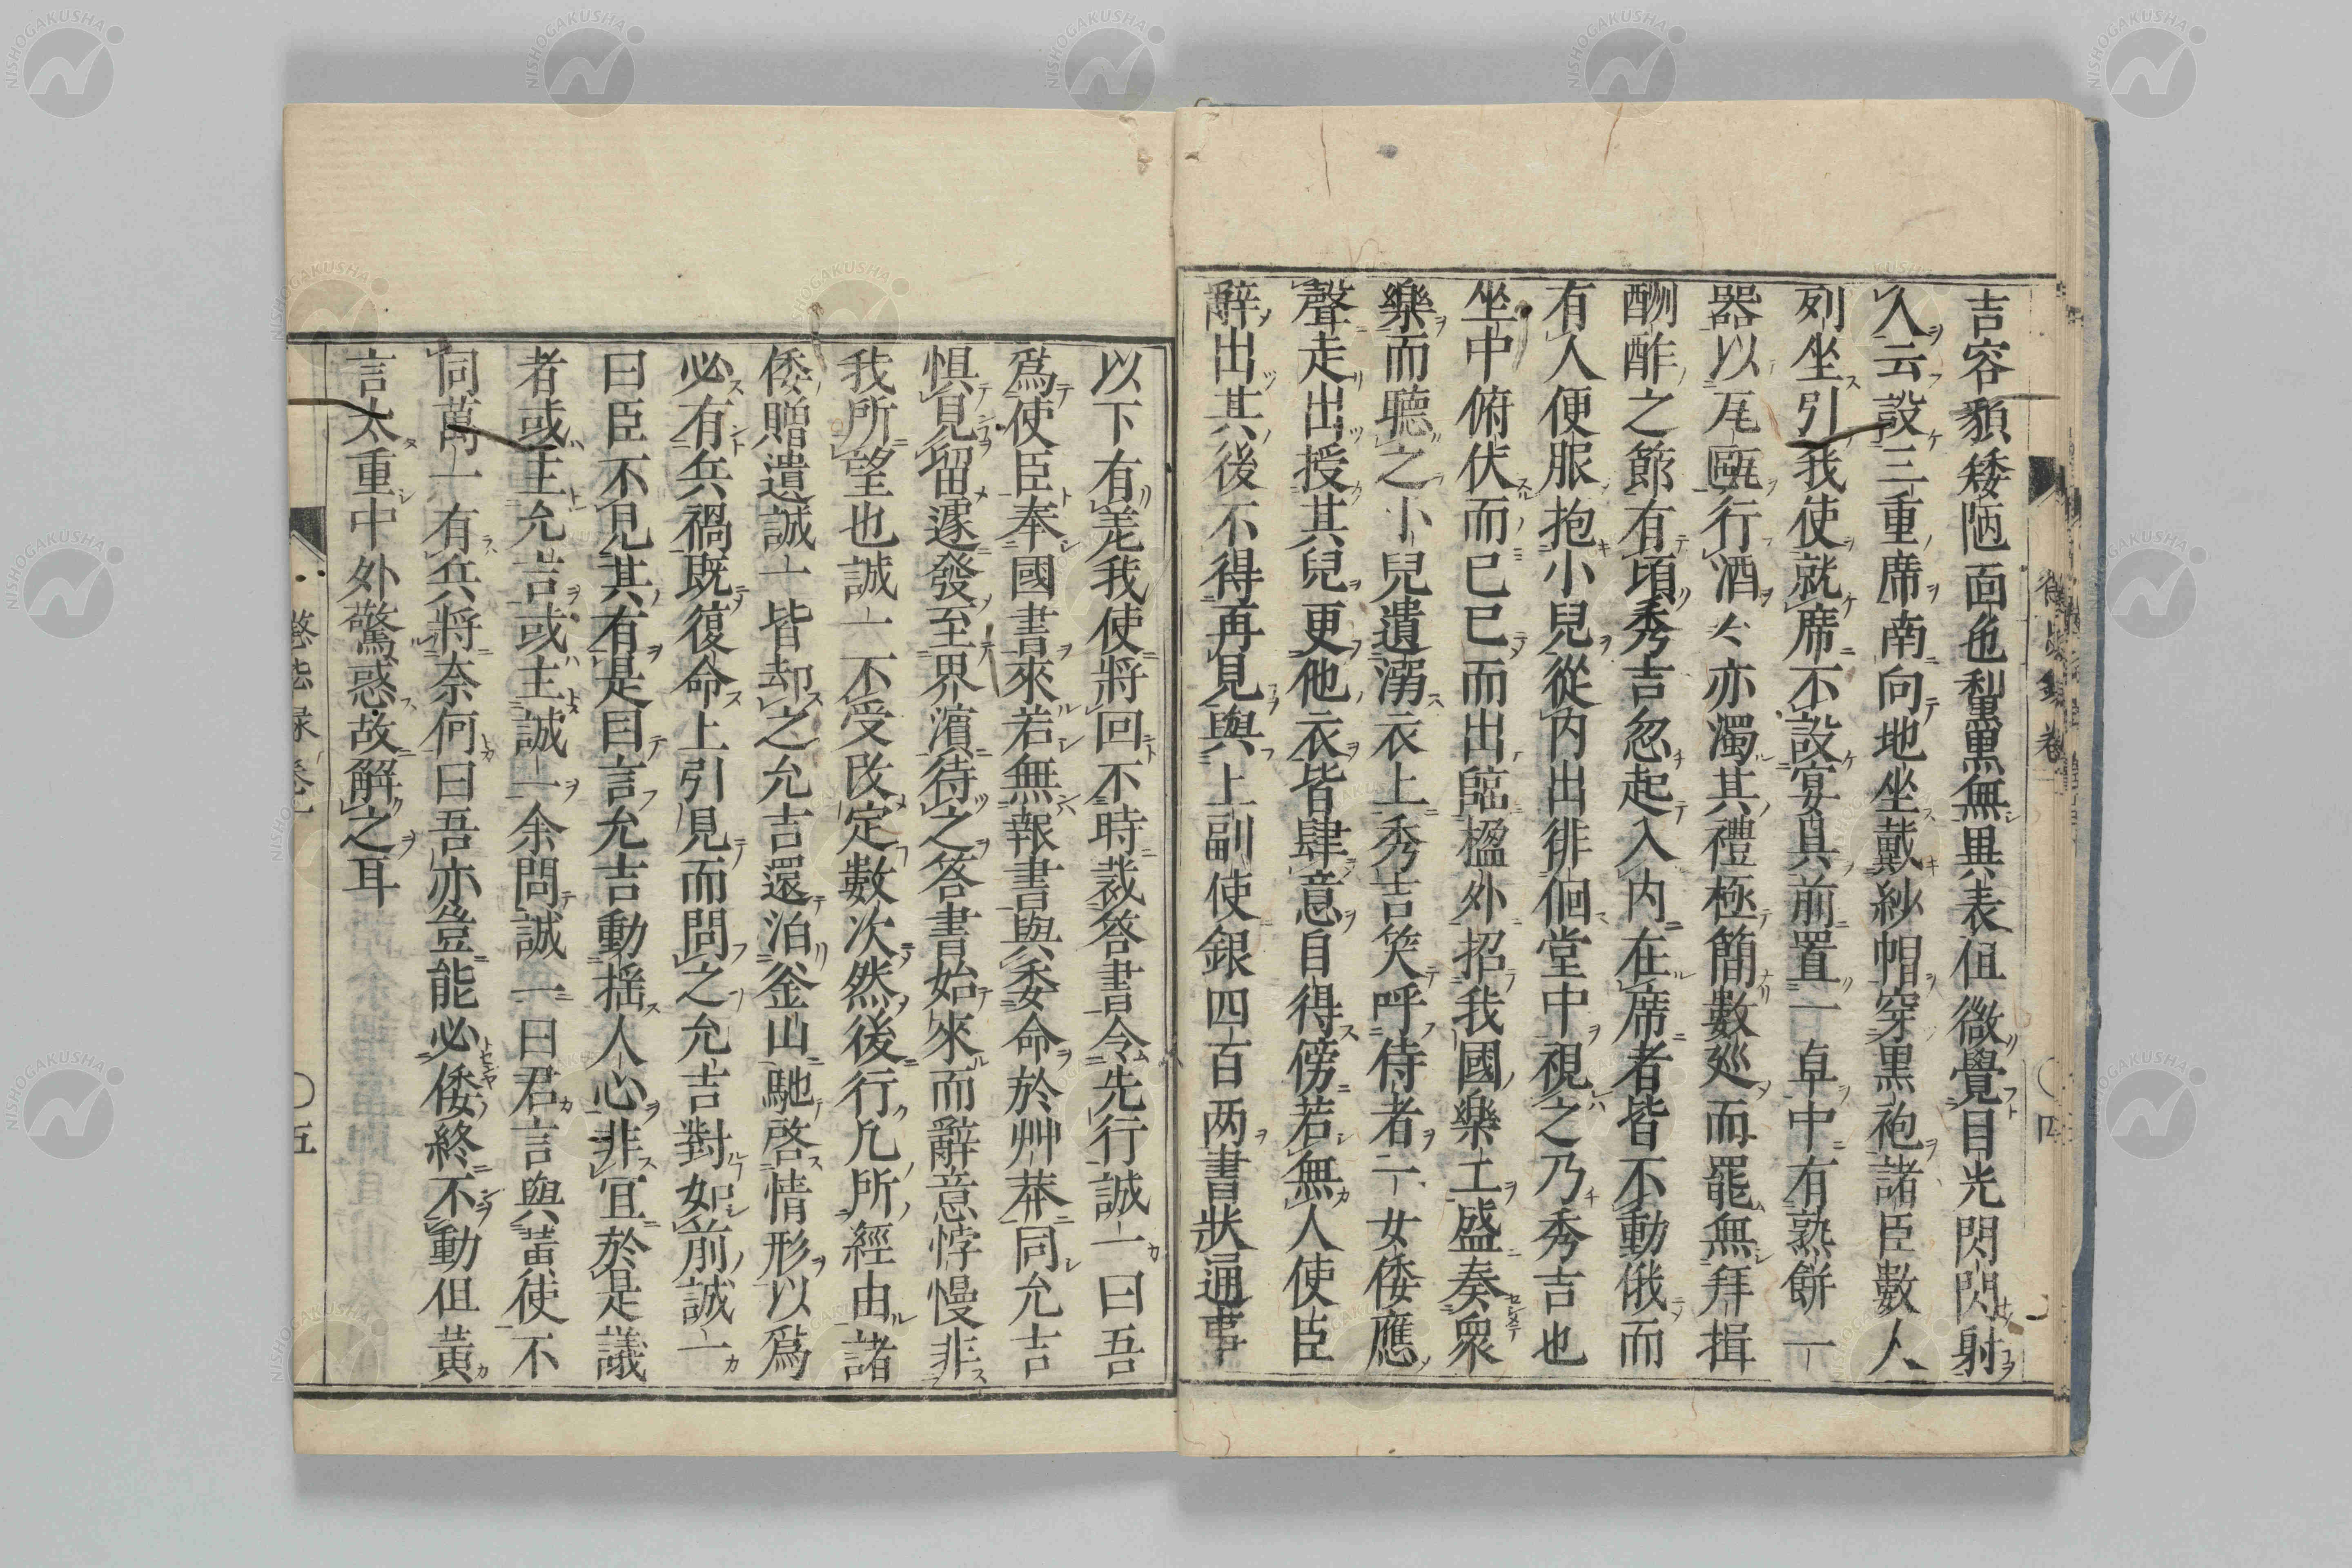 吉容貌矮陋面色黧黒無異表但微覺目光閃閃射
人云設三重席南向地坐戴紗帽穿黒袍諸臣數人
列坐引我使就席不設宴具前置一卓中有熟餅一
器以瓦甌行酒〻亦濁其禮極簡數廵而罷無拜揖
酬酢之節有頃秀吉忽起入内在席者皆不動俄而
有人便服抱小兒從内出徘徊堂中視之乃秀吉也
坐中俯伏而已已而出臨楹外招我國樂工盛奏衆
樂而聽之小兒遺溺衣上秀吉笑呼侍者一女倭應
聲走出授其兒更他衣皆肆意自得傍若無人使臣
辭出其後不得再見與上副使銀四百两書狀通事
以下有差我使將回不時裁答書令先行誠一曰吾
爲使臣奉國書來若無報書與委命於艸莽同允吉
懼見留遽發至界濵待之答書始來而辭意悖慢非
我所望也誠一不受改定數次然後行凢所經由諸
倭贈遺誠一皆却之允吉還泊釜山馳啓情形以爲
必有兵禍既復命上引見而問之允吉對如前誠一
曰臣不見其有是因言允吉動揺人心非宜於是議
者或主允吉或主誠一余問誠一曰君言與黄使不
同萬一有兵將奈何曰吾亦豈能必倭終不動但黄
言太重中外驚惑故解之耳
懲毖録卷一
〇五
NISHOGAKUSHA